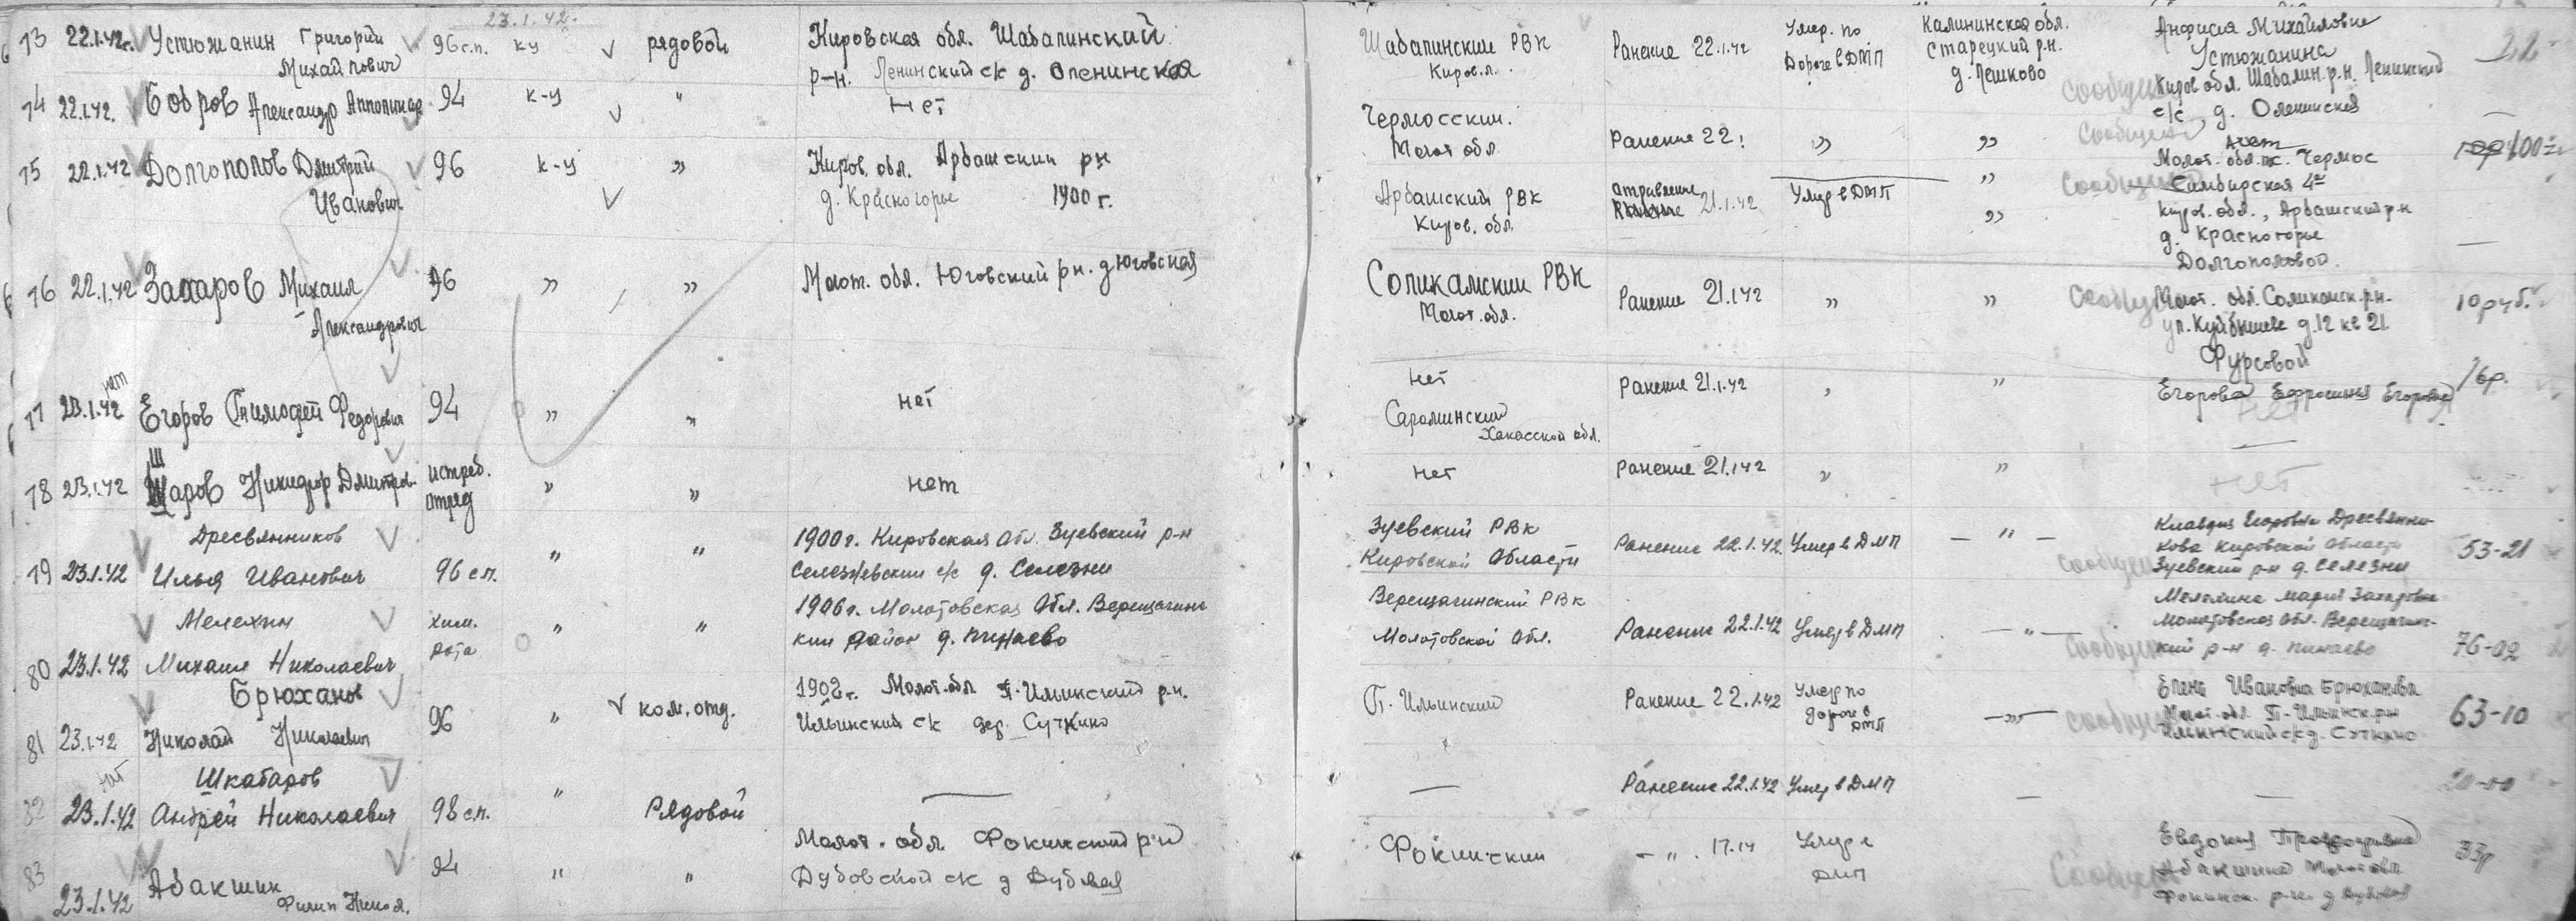 23.1.42.
73 22.1.42г. Устюжанин Григорий Михайлович 96 с.п. ку рядовой Кировская обл. Шабалинский р-н. Ленинский с/к д. Оленинская Шабалинский РВК Киров. Ранение 22.1.42 Умер. по дороге в ДМП Калининская обл. Старецкий р.н. д. Лешково Анфисия Михайловне Устюжанина Киров обл. Шабалин. р.н. Ленинский с/с, д. Оленинская
74 22.1.42. Бобров Александр 94 к-у " нет Чермосский. Молот обл Ранение 22. " " нет Молот. обл. Чермос Симбирская сообщ 100
75 22.1.42 Долгополов Дмитрий Иванович 96 к-у " Киров. обл. Арбашский рн д. Красногорье 1900 г. Арбашский РВК Киров. обл. отравление 21.1.42 Умер в ДМП " Киров. обл., Арбашский р-н д. Красногорье Долгополовой —
76 22.1.42 Захаров Михаил Александрович 96 " " Молот. обл. Юговский рн. д Юговская Соликамский РВК Молот. обл. Ранение 21.1.42 " " Молот. обл. Соликамск. р.н. ул. Куйбышева д.12 кв 21 Фурсовой 10 руб.
77 нет 23.1.42 Егоров Тимофей Федорович 94 " " нет нет Саралинский Хакасской обл. Ранение 21.1.42 " " Егорова Ефросиния Егоровна нет
78 23.1.42 Шаров Никифор Дмитров. истреб. отряд " " нет нет Ранение 21.1.42 " " нет
79 23.1.42 Дресвянников Илья Иванович 96 с.п. " " 1900 г. Кировская Обл. Зуевский р-н Селезневский с/с д. Селезни Зуевский РВК Кировской Области Ранение 22.1.42. Умер в ДМП — " — Клавдия Егоровна Дресвянникова Кировской Области Зуевский р-н д. Селезни 53-21
80 23.1.42 Мелехин Михаил Николаевич хим. рота " " 1906 г. Молотовская Обл. Верещагинский район д. Пинаево Верещагинский РВК Молотовской Обл. Ранение 22.1.42 Умер в ДМП — " — Мелехина Мария Захаровна Молотовская Обл. Верещагинский р-н д. Пинаево 76-02
81 23.1.42 Брюханов Николай Николаевич 96 " ком. отд. 1902 г. Молот. обл П-Ильинский р.н. Ильинский с/к дер. Суткино П-Ильинский Ранение 22.1.42 Умер по дороге в ДМП — " — Елена Ивановна Брюханова Молот. обл. П-Ильинск. рн Ильинский с/к д. Суткино 63-10
82 23.1.42 Шкабаров Андрей Николаевич 98 с.п. " Рядовой — — Ранение 22.1.42 Умер в ДМП — — 20-00
83 23.1.42 Абакшин Филип Никол. 94 " " Молот. обл Фокинский р-н Дубовской с/к д Дубовая Фокинский — " . Умер в ДМП Евдокия Абакшина Фокинск. р-н. д Дубовая 33р